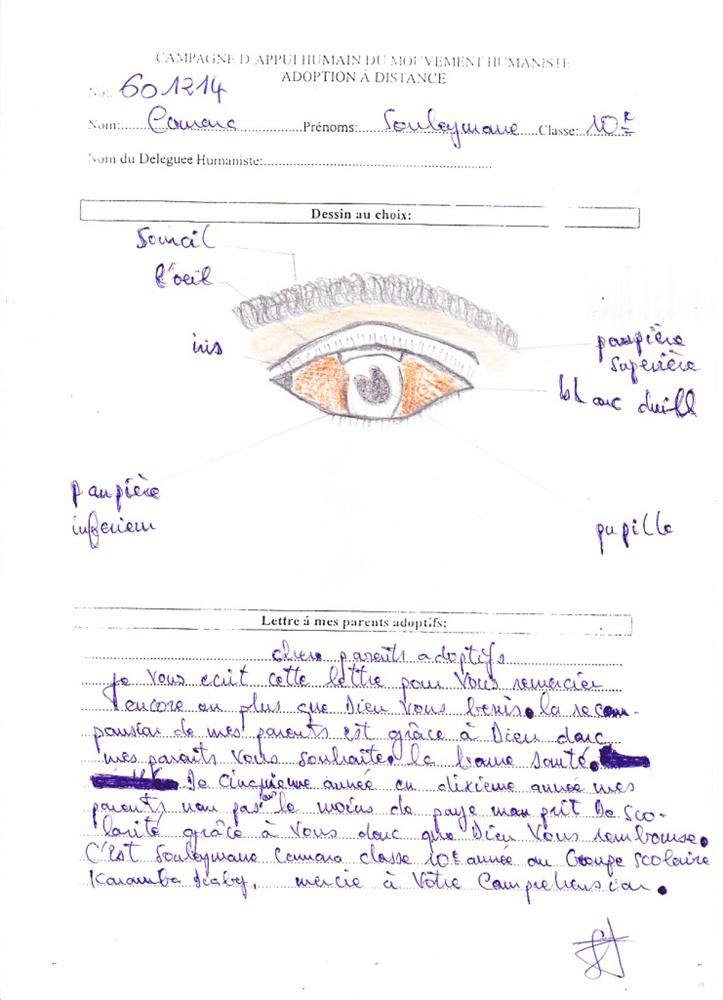 CAMPAGNE D'APPUI HUMAIN DU MOUVEMENT HUMANISTE
ADOPTION À DISTANCE
No: 601214
Nom: Camara Prénoms: Souleymane Classe: 10e
Nom du Deleguee Humaniste:
Dessin au choix:
Sourcil
l'oeil
iris
paupière
superière
blanc
paupière
inferieur
pupille
Lettre á mes parents adoptifs:
chers parents adoptifs
Je vous ecrit cette lettre pour vous remercier
encore au plus que Dieu vous benis. la recom-
pansian de mes parents est grâce à Dieu donc
mes parents vous souhaites la bonne santé.
De cinquieme année en dixieme année mes
parents non pas le moins de paye mon prit De sco-
larité grâce à vous donc que Dieu vous rembourse.
C'est Souleymane Camara classe 10e année au Groupe Scolaire
Karamba, mercie à votre Comprehension.